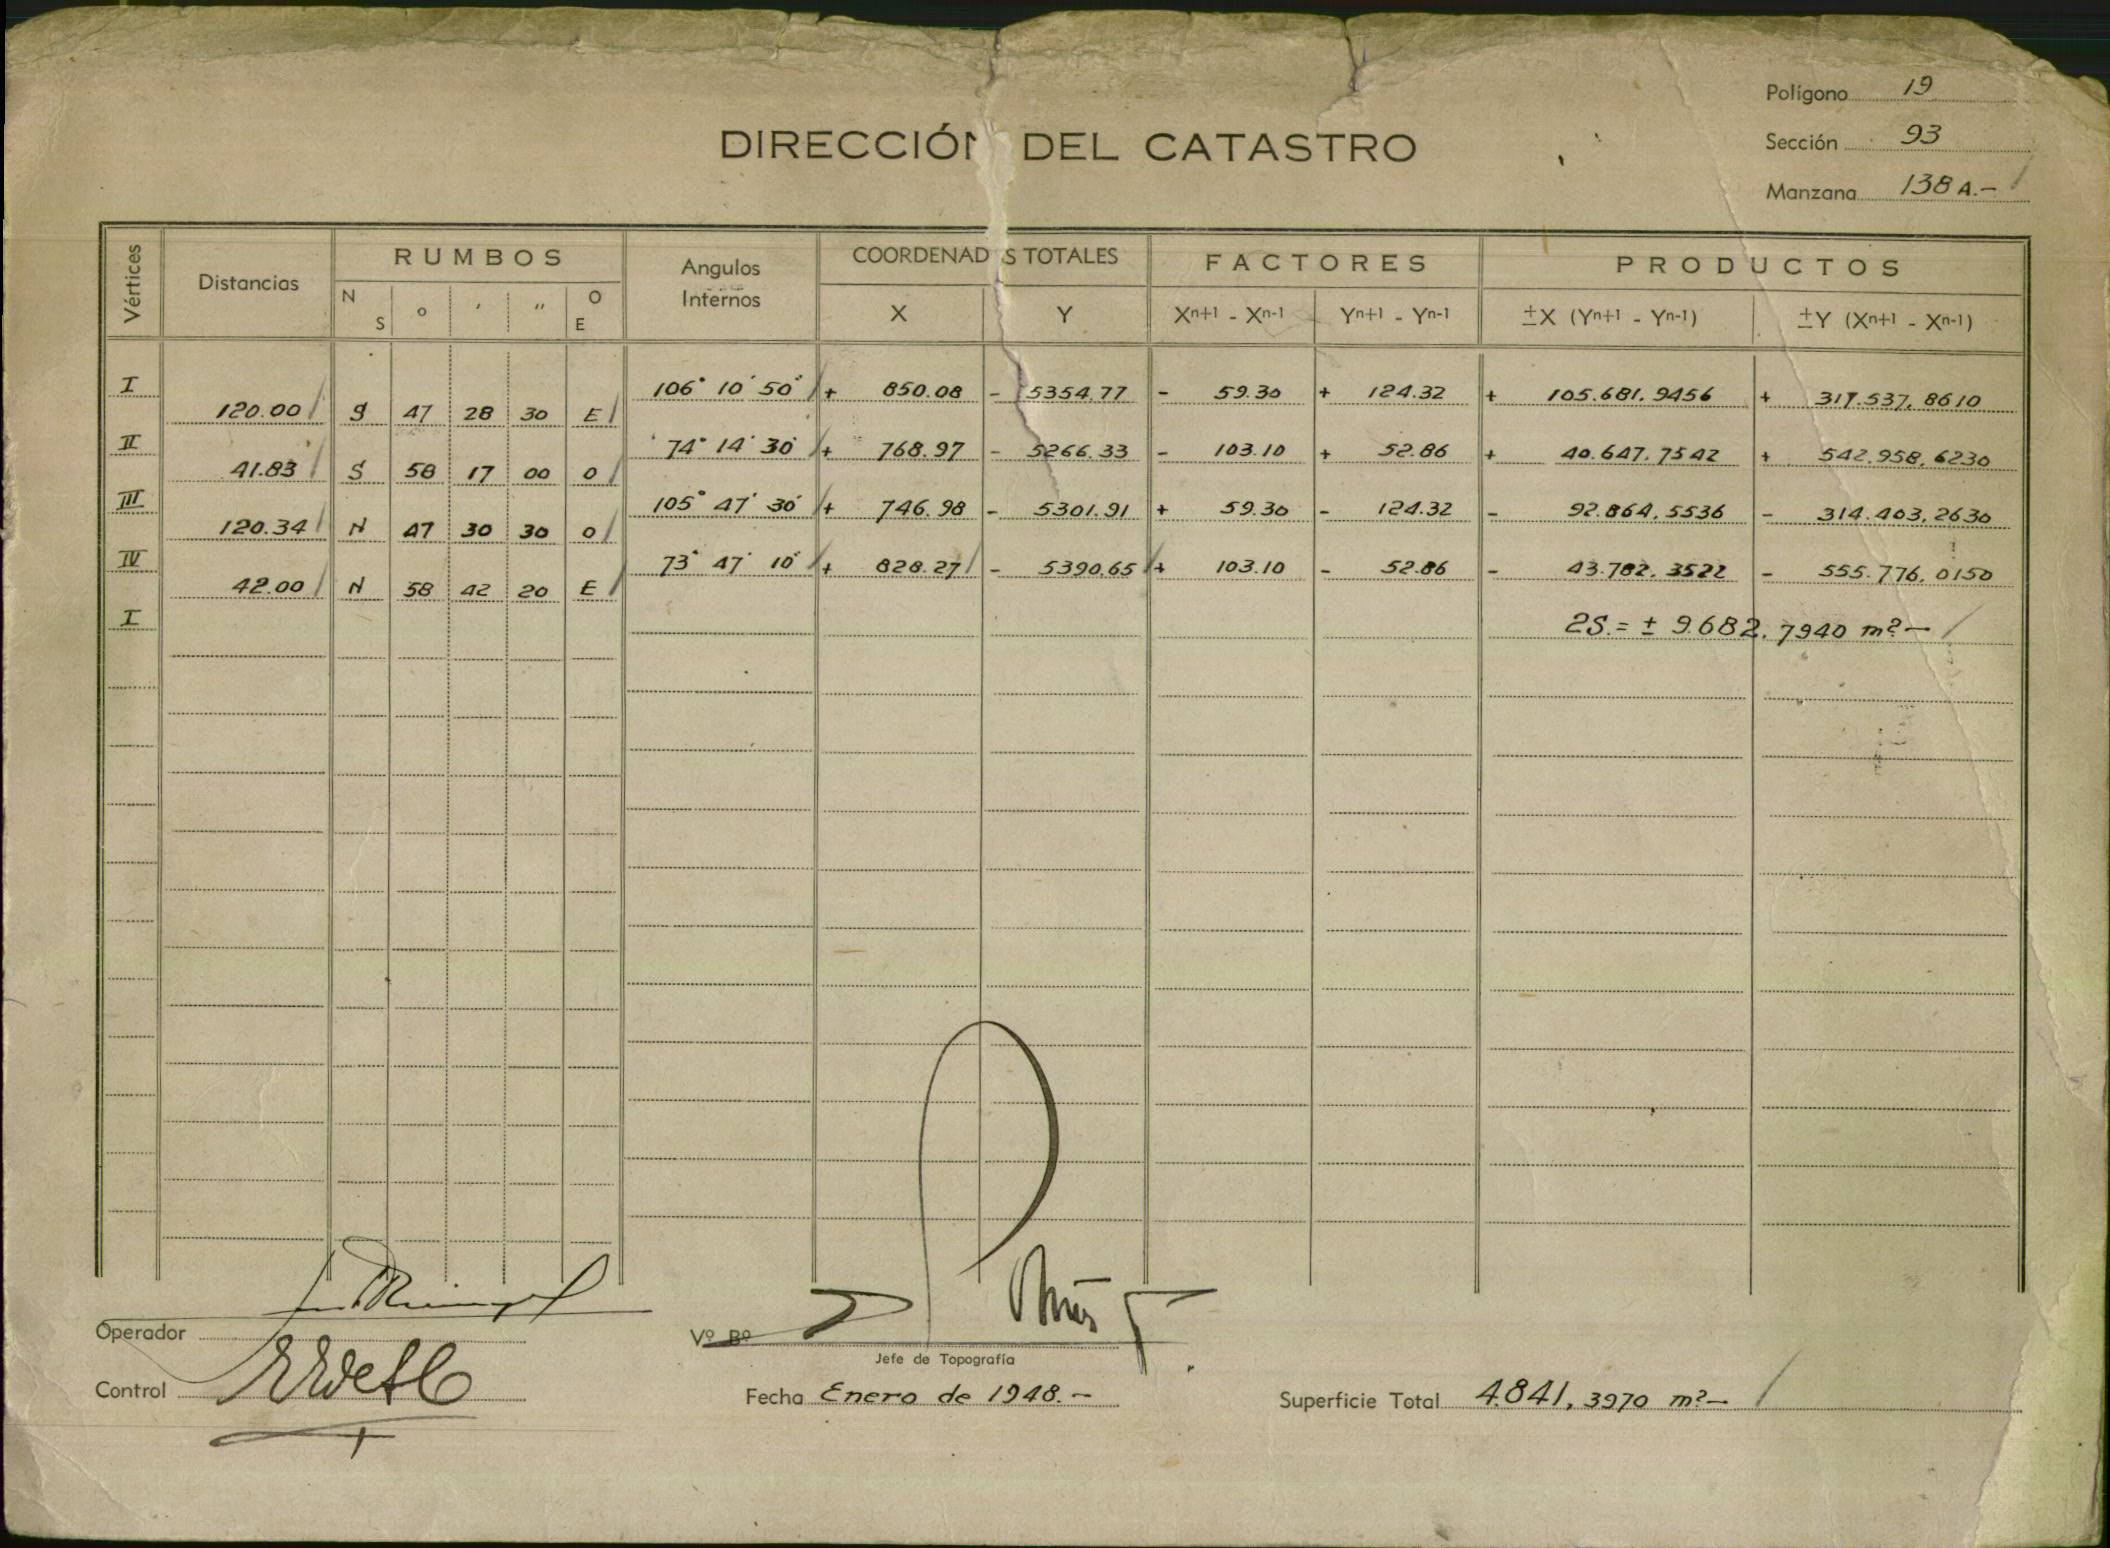 Polígono 19
DIRECCIÓN DEL CATASTRO
Sección 93
Manzana 138 A.-
Vértices Distancias RUMBOS Angulos Internos COORDENADAS TOTALES FACTORES PRODUCTOS
N S ° ' " O E X Y Xn+1 - Xn-1 Yn+1 - Yn-1 ±X (Yn+1 - Yn-1) ±Y (Xn+1 - Xn-1)
I 106° 10' 50" + 850.08 - 5354.77 - 59.30 + 124.32 + 105.681,9456 + 317.537,8610
120.00 S 47 28 30 E
II 74° 14' 30" + 768.97 - 5266.33 - 103.10 + 52.86 + 40.647,7542 + 542.958,6230
41.83 S 58 17 00 O
III 105° 47' 30" + 746.98 - 5301.91 + 59.30 - 124.32 - 92.864,5536 - 314.403,2630
120.34 N 47 30 30 O
IV 73° 47' 10" + 828.27 - 5390.65 + 103.10 - 52.86 - 43.782,3522 - 555.776,0150
42.00 N 58 42 20 E
I 2S.= ± 9.682,7940 m²-
Operador
Vº Bº
Jefe de Topografía
Control
Fecha Enero de 1948.-
Superficie Total 4.841,3970 m²-